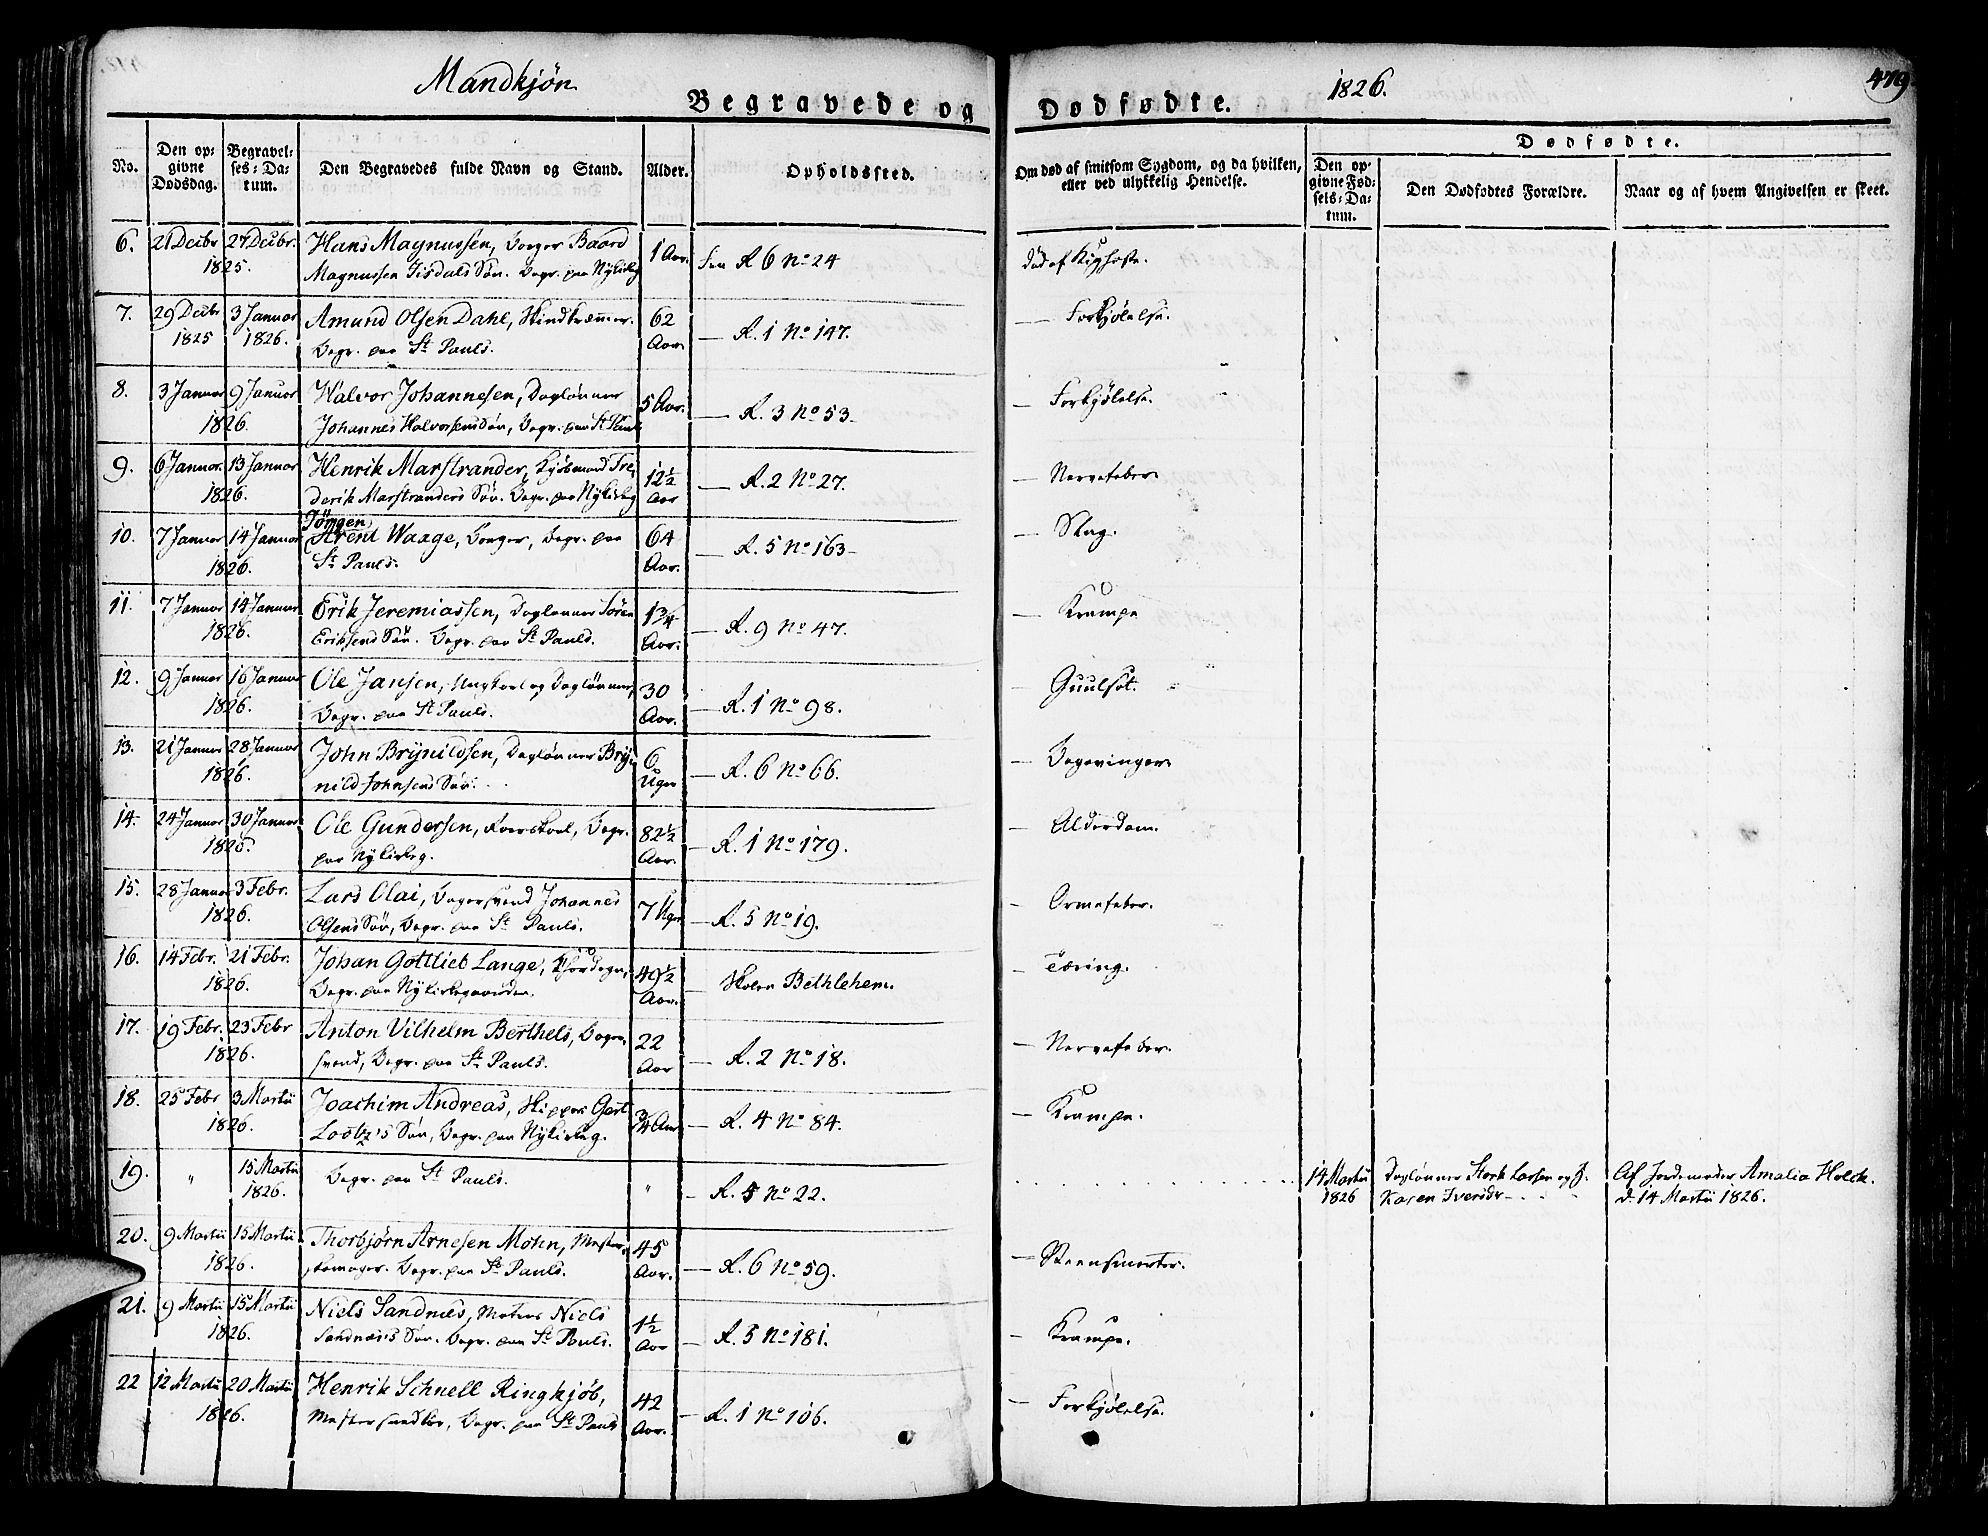 Mandkjøn
1826.
479
Begravede og Dødfødte.
No.
Den opgivne Dødsdag.
Begravelses-Datum.
Den Begravedes fulde Navn og Stand.
Alder.
Opholdssted.
Om død af smitsom Sygdom, og da hvilken, eller ved ulykkelig Hendelse.
Dødfødte.
Den opgivne Fødsels-Datum.
Den Dødfødtes Forældre.
Naar og af hvem Angivelsen er skeet.
6. 21 Decbr 27 Decbr. 1825. Hans Magnussen, Borger Baard 1 Aar. R 6 No 24 død af Kighoste.
Magnussen Søn. Begr. paa Nykirkeg
7. 29 Decbr 1825 3 Januar 1826. Amund Olsen Dahl, 62 Aar. — R. 1 No 147. — Forkjølelse.
Begr. paa St Pauls.
8. 3 Januar 9 Januar 1826. Halvor Johannesen, Daglønner 5 Aar. — R. 3 No 53 — Forkjølelse.
Johannes Halvorsens Søn, Begr. paa St Pauls
9. 6 Januar. 13 Januar 1826. Henrik Marstrander, Kjøbmand Fre 12½ Aar — R. 2 No 27. — Nervefeber.
derik Marstranders Søn. Begr. paa Nykirkeg
10. 7 Januar 14 Januar 1826. Jörgen Arent Waage, Borger, Begr. paa 64 Aar. — R. 5 No 163 — Slag.
St Pauls.
11. 7 Januar 14 Januar 1826. Erik Jeremiassen, Daglønner Sören 1¾ Aar. — R. 9 No 47. — Krampe
Eriksens Søn. Begr. paa St Pauls.
12. 9 Januar 16 Januar 1826. Ole Jansen, Ungkarl og Daglønner, 30 Aar. — R. 1 No 98. — Guulsot.
Begr. paa St Pauls.
13. 21 Januar 28 Januar 1826. John Brynildsen, Daglønner Bry 6 Uger — R. 6 No 66. —
nild Johnsens Søn.
14. 24 Januar 30 Januar 1826. Ole Gundersen, Begr. 82½ Aar. — R. 1 No 179. — Alderdom.
paa Nykirkeg.
15. 28 Januar 3 Febr. 1826. Lars Olai, Bagersvend Johannes 7 Uger — R. 5 No 19. — Ormefeber.
Olsens Søn, Begr. paa St Pauls.
16. 14 Febr. 21 Febr. 1826. Johan Gottlieb Lange, 49½ Aar. — Skolen Bethlehem. — Tæring.
Begr. paa
17. 19 Febr. 23 Febr 1826. Anton Vilhelm Berthels, Bager 22 Aar — R. 2 No 18. — Nervefeber.
svend, Begr. paa St Pauls.
18. 25 Febr 3 Martii 1826. Joachim Andreas, Skipper Gert ¾ Aar — R. 4 No 84. — Krampe.
Søn, Begr. paa Nykirkeg.
19. " 15 Martii 1826. Begr. paa St Pauls. " — R. 5 No 22. 14 Martii 1826 Daglønner Larsen og Karen Iversdr Af Jordemoder Amalia Holck. d. 14 Martii 1826.
20. 9 Martii 15 Martii 1826. Thorbjørn Arnesen Mohn, Mester 45 Aar. — R. 6 No 59. — Steensmerter.
Begr. paa St Pauls.
21. 9 Martii 15 Martii 1826. Niels Sandnæs, Matros Niels 1½ Aar — R. 5 No 181. — Krampe.
Sandnæs's Søn. Begr. paa St Pauls.
22 12 Martii 20 Martii 1826. Henrik Schnell Ringkjöb, 42 Aar. — R. 1 No 106. — Forkjølelse.
Begr. paa St Pauls